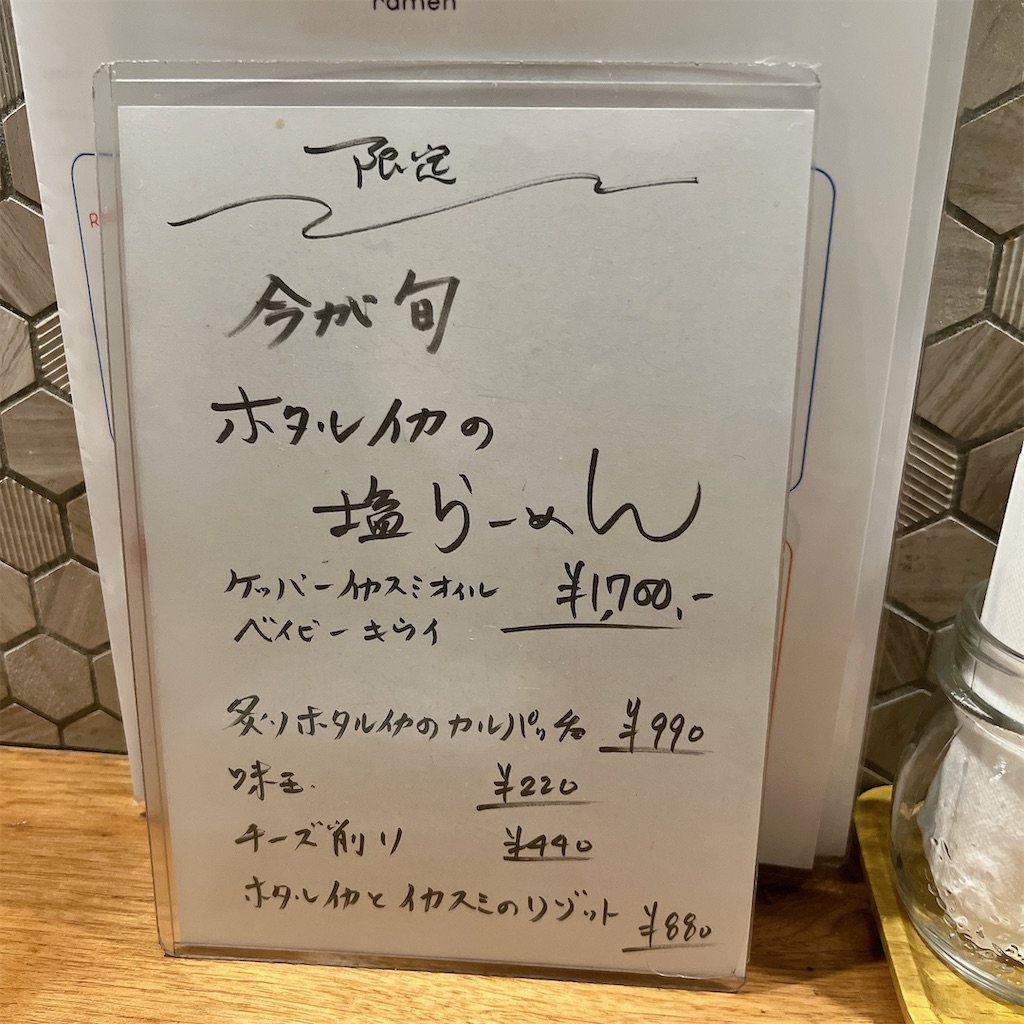 ramen
限定
今が旬
ホタルイカの
塩らーめん
ケッパーイカスミオイル ¥1,700.-
ベイビーキウイ
炙りホタルイカのカルパッチョ ¥990
味玉 ¥220
チーズ削り ¥440
ホタルイカとイカスミのリゾット ¥880